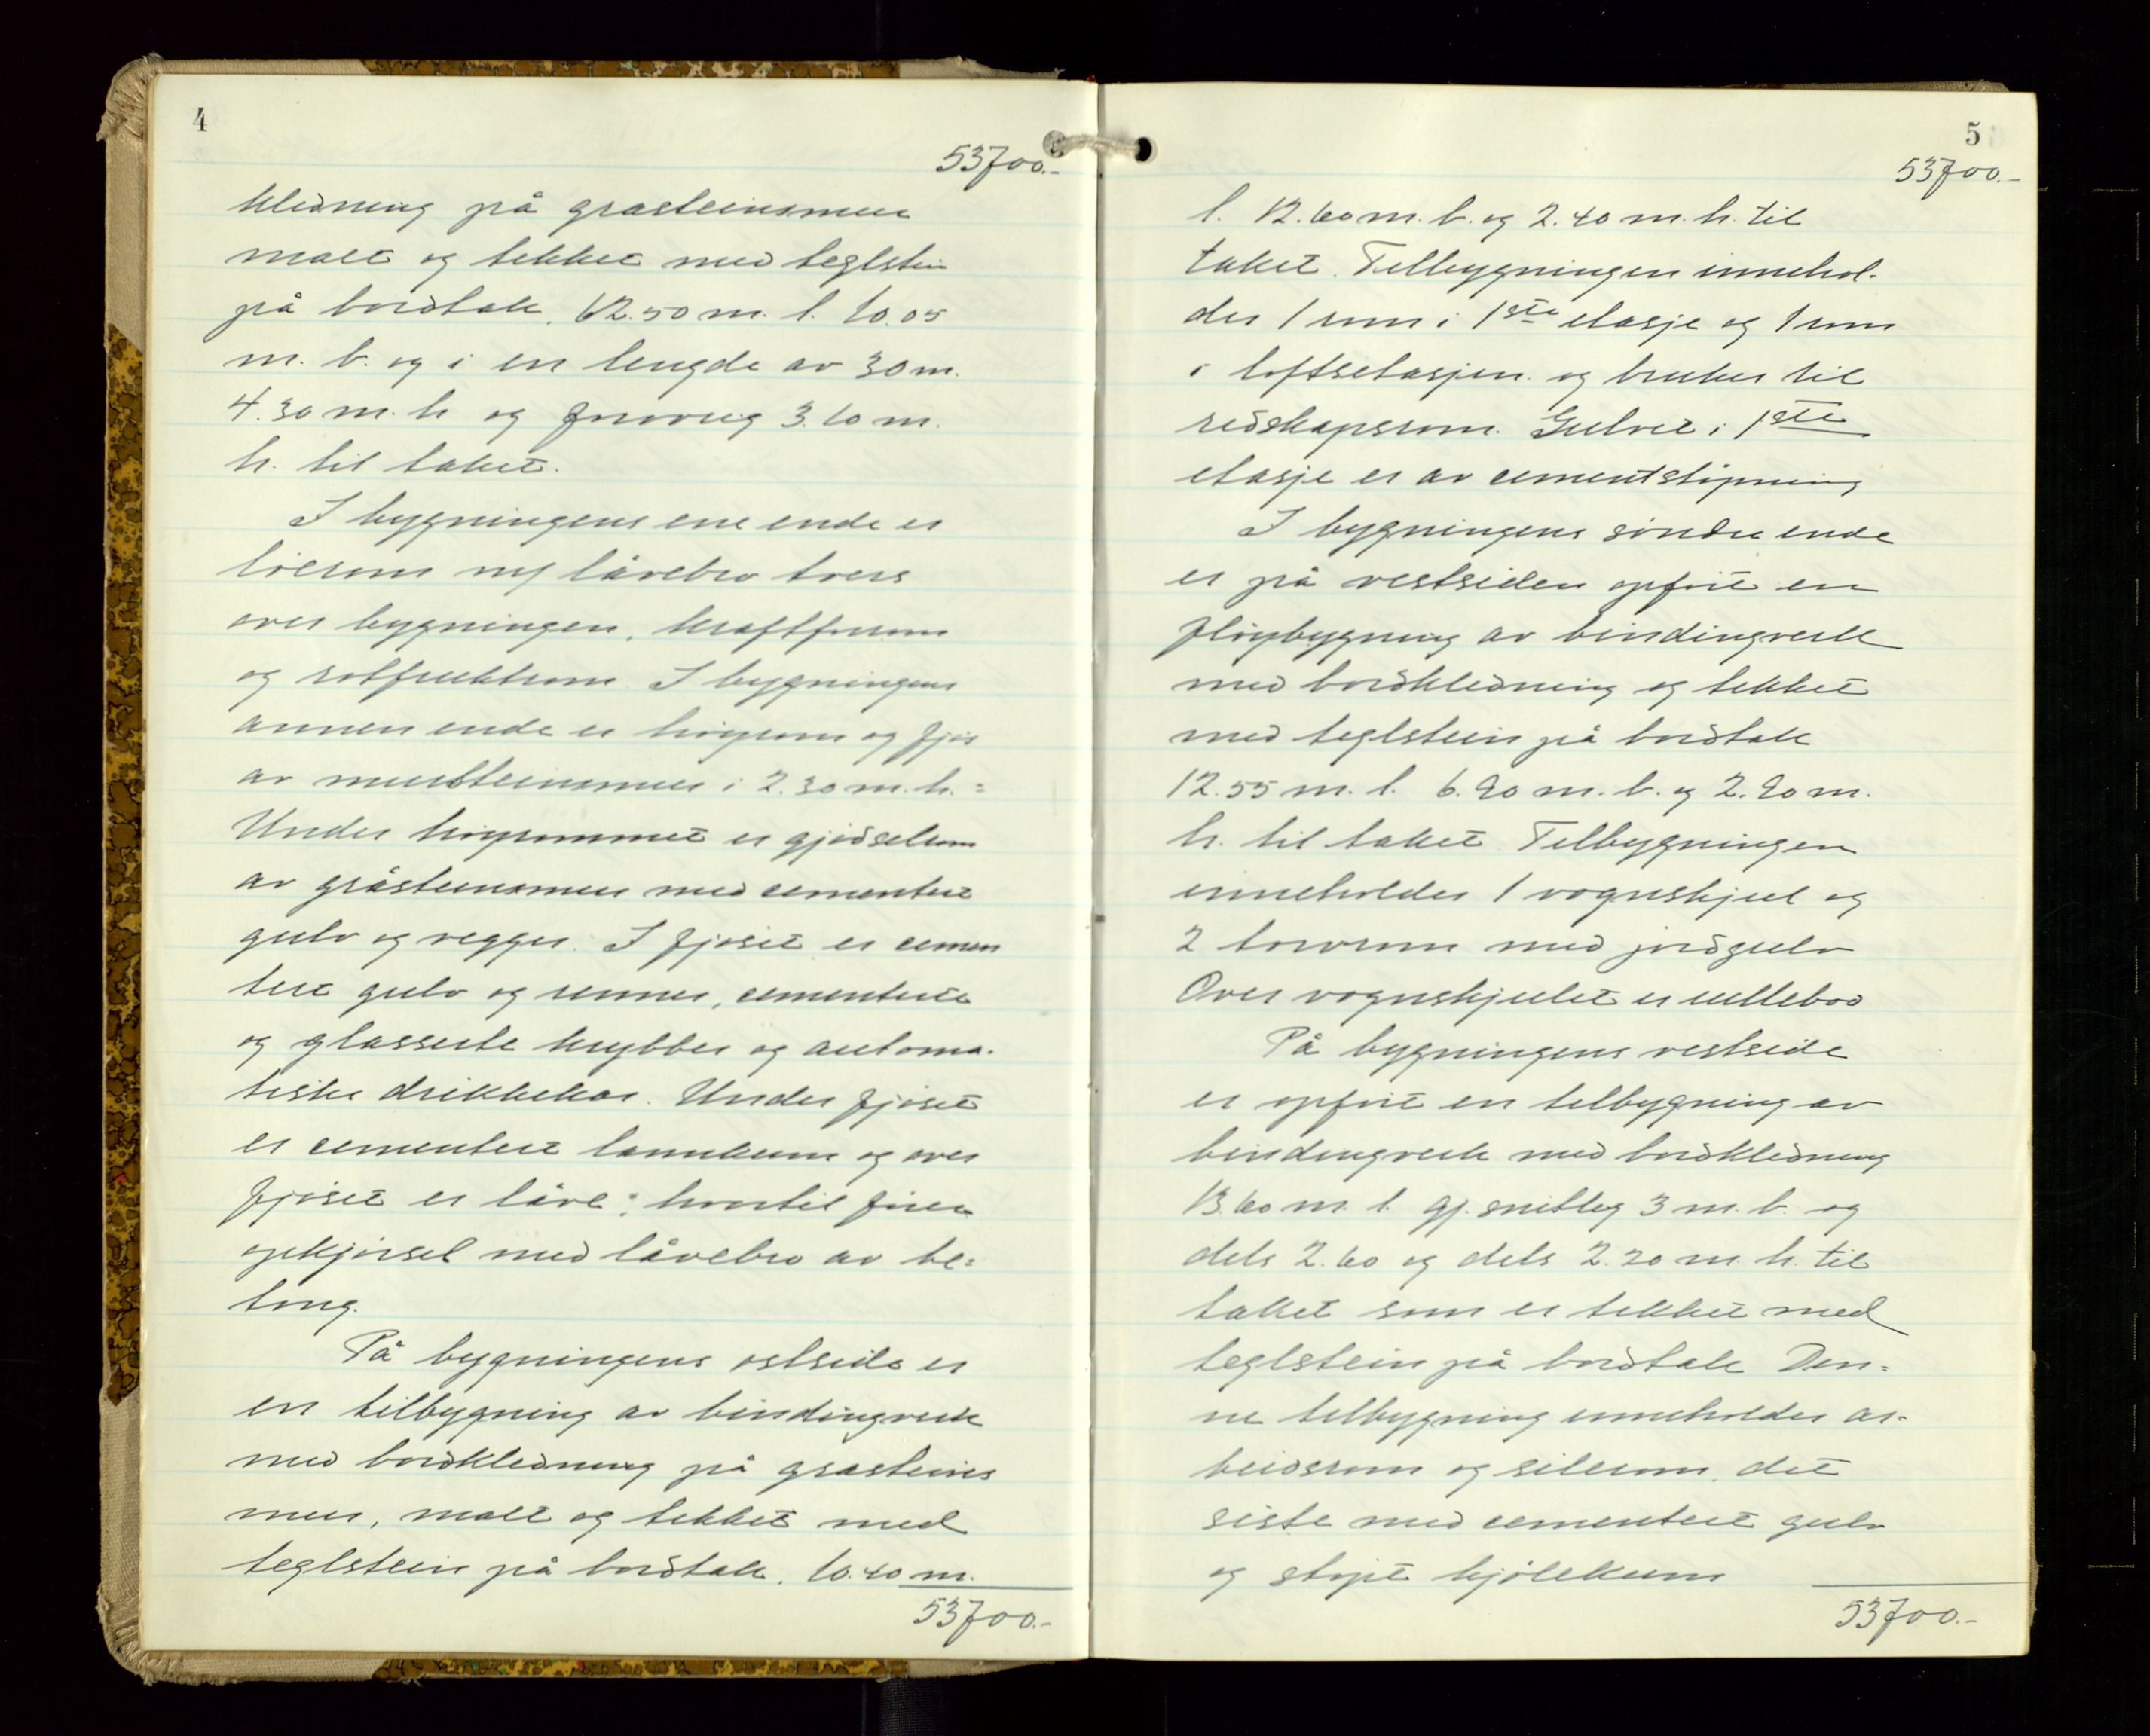 4
53700.-
kledning på grasteinsmur
malt og tekket med teglstein
på bordtak, 62.50 m. l. 10.05
m. b. og i en lengde av 30 m.
4.30 m. h og forøvrig 3.10 m.
h. til taket.
I bygningens ene ende er
løerom m/ låvebro tvers
over bygningen, kraftforrom
og rotfruktrom. I bygningens
annen ende er høyrom og fjøs
av mursteinsmur i 2.30 m. h. =
Under høyrommet er gjødselrom
av gråsteinsmur med cementert
gulv og vegger. I fjøset er cemen
tert gulv og renner, cementerte
og glasserte krybber og automa-
tiske drikkekar. Under fjøset
er cementert landkum og over
fjøset er låve; hvortil fører
opkjørsel med låvebro av be=
tong.
På bygningens østside er
en tilbygning av bindingverk
med bordkledning på grasteins
mur, malt og tekket med
teglstein på bordtak, 10.40 m.
53700.-
5
53700.-
l. 12.60 m. b. og 2.40 m. h. til
taket. Tilbygningen innehol-
der 1 rum i 1ste etasje og 1 rum
i loftsetasjen og brukes til
redskapsrom. Gulvet i 1ste
etasje er av cementstøpning
I bygningens søndre ende
er på vestsiden opført en
fløybygning av bindingverk
med bordkledning og tekket
med teglstein på bordtak
12.55 m. l. 6.90 m. b. og 2.90 m.
h. til taket. Tilbygningen
inneholder 1 vognskjul og
2 torvrum med jordgulv
Over vognskjulet er rullebod
På bygningens vestside
er opført en tilbygning av
bindingverk med bordkledning
13.60 m. l. gj. snitlig 3 m. b. og
dels 2.60 og dels 2.20 m. h. til
taket som er tekket med
teglstein på bordtak Den=
ne tilbygning inneholder ar-
beidsrom og silerom, det
siste med cementert gulv
og støpt kjølekum
53700.-